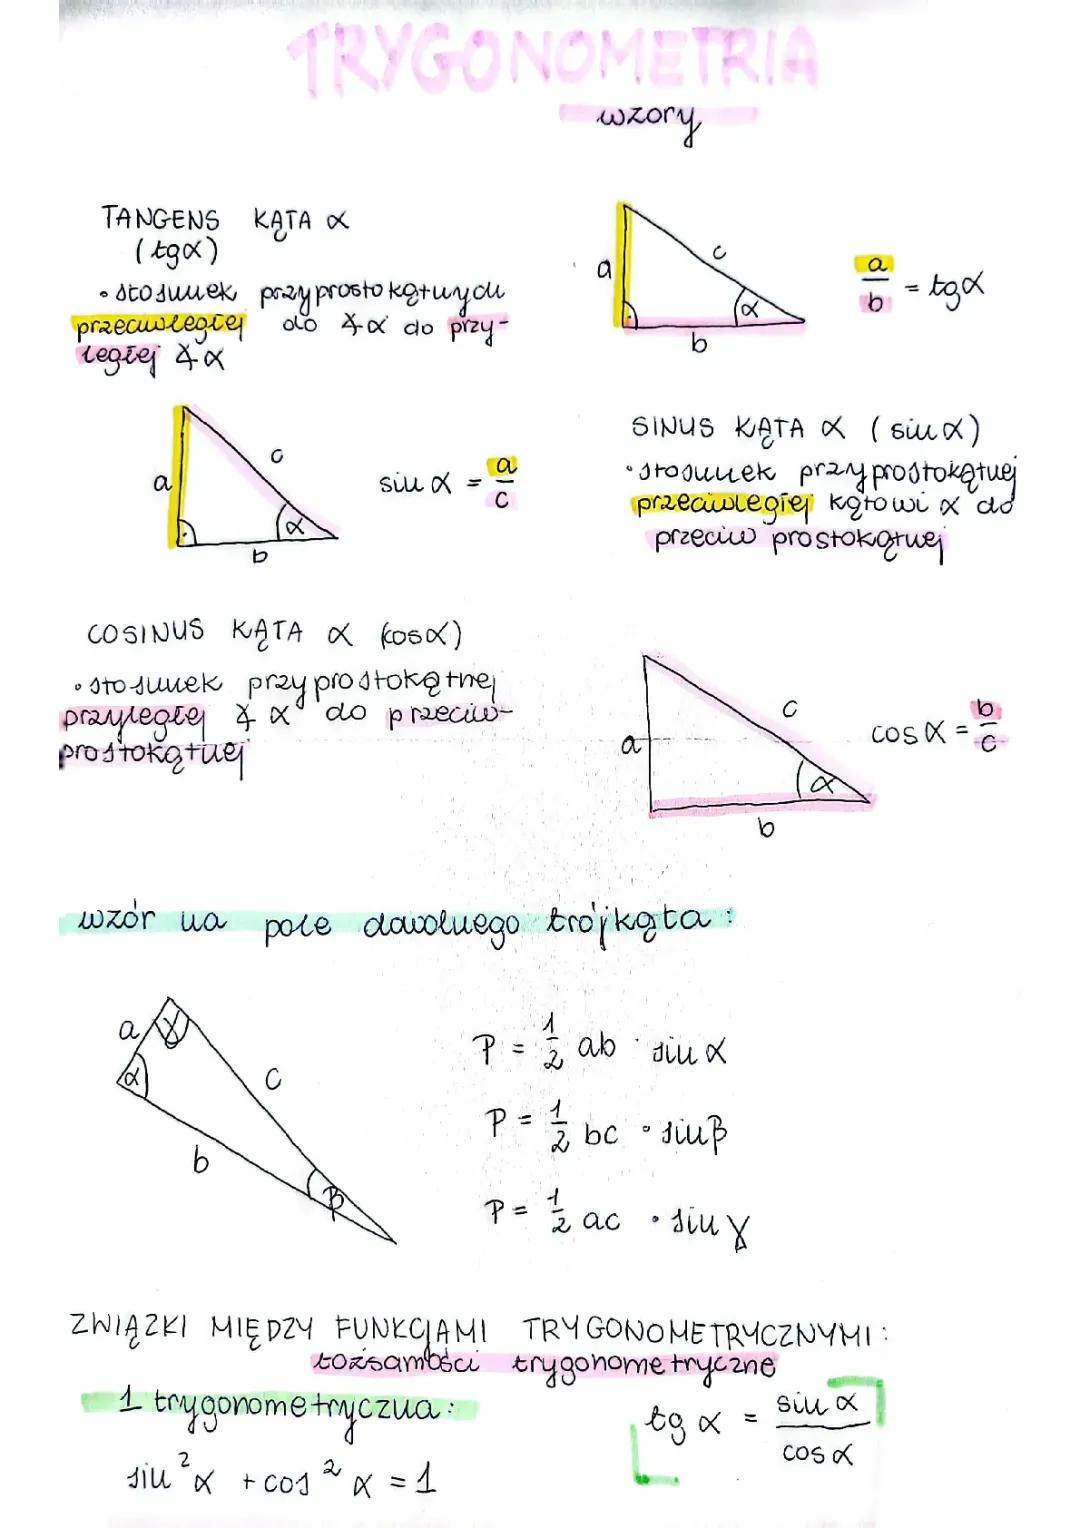 TRYGONOMETRIA
wzory
TANGENS KĄTA α
(tgα)
• stosunek przyprostokątnych
przeciwległej do ∢α do przy-
ległej ∢α
a
c
b
α
a/b = tgα
a
c
b
α
sin α = a/c
SINUS KĄTA α (sinα)
• stosunek przyprostokątnej
przeciwległej kątowi α do
przeciw prostokątnej
COSINUS KĄTA α (cosα)
• stosunek przyprostokątnej
przyległej ∢α do przeciw-
prostokątnej
a
c
b
α
cos α = b/c
wzór na pole dowolnego trójkąta:
a
γ
α
c
b
β
P = 1/2 ab · sin α
P = 1/2 bc · sinβ
P = 1/2 ac · sin γ
ZWIĄZKI MIĘDZY FUNKCJAMI TRYGONOMETRYCZNYMI:
tożsamości trygonometryczne
1 trygonometryczna:
sin²α + cos²α = 1
tg α = sin α/cos α